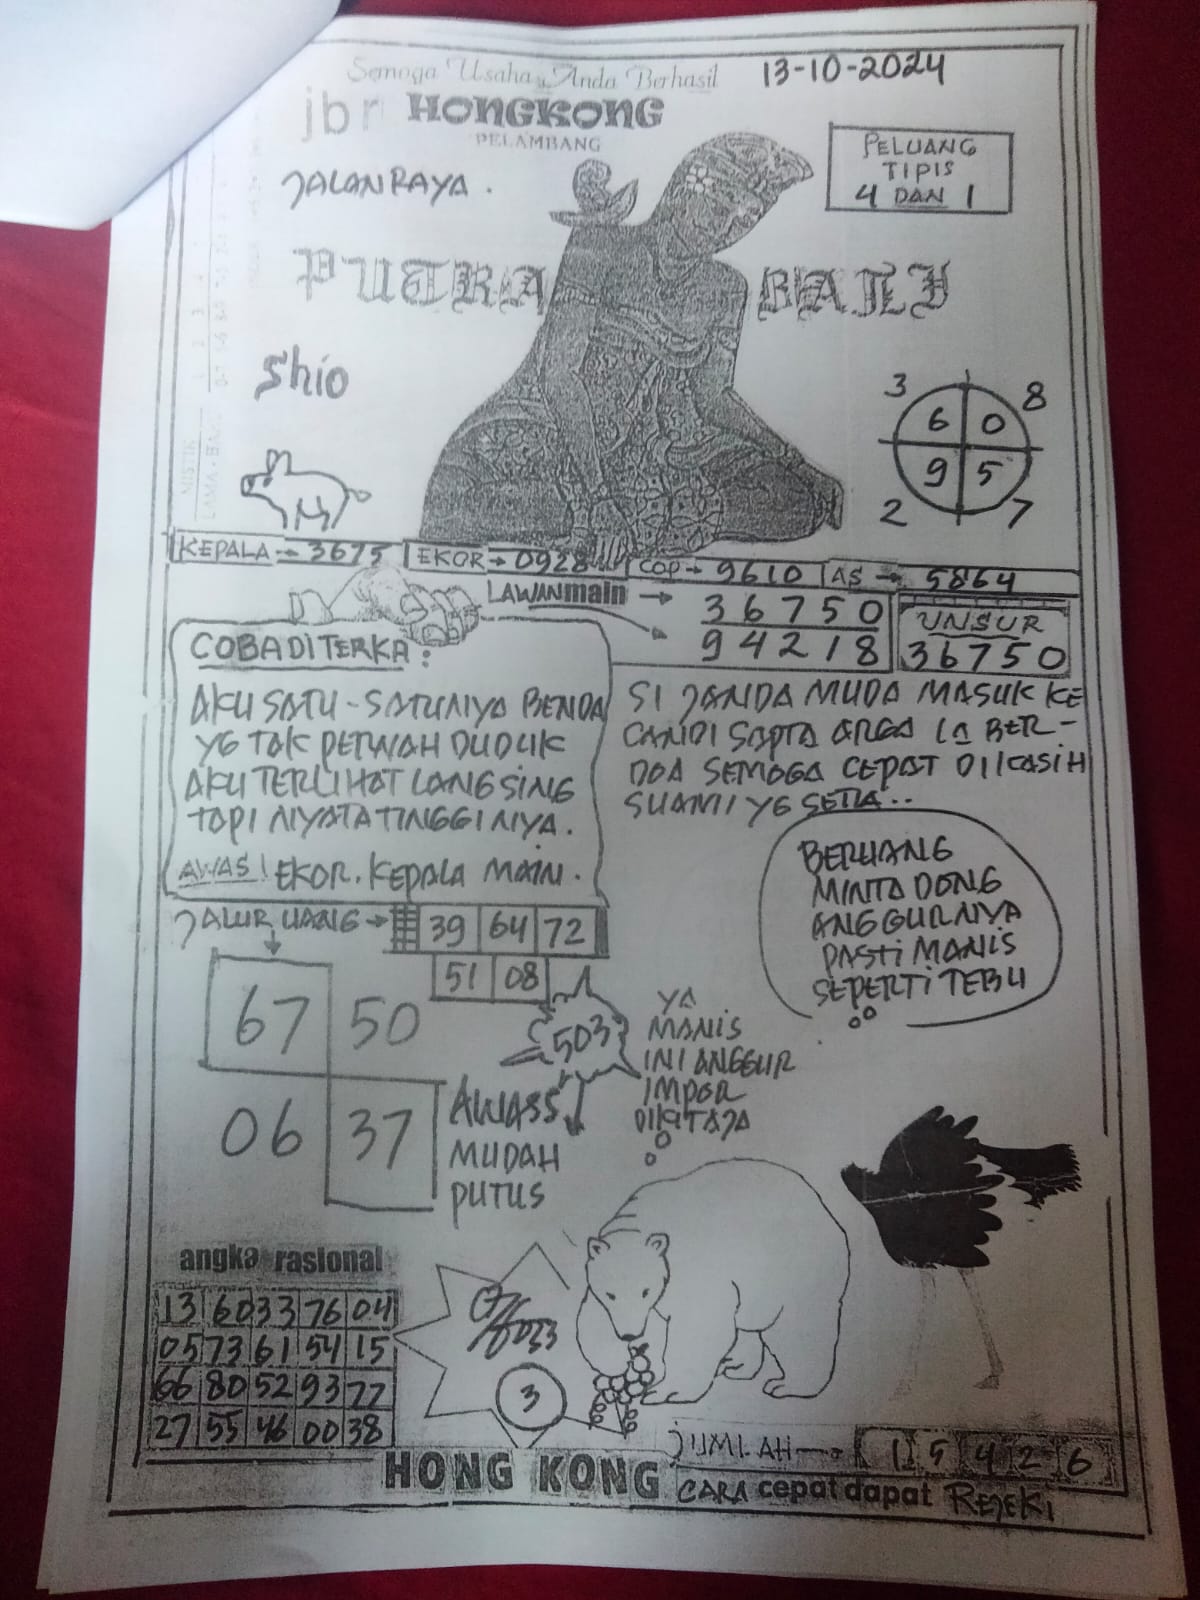 Semoga Usaha Anda Berhasil
13-10-2024
jbr HONGKONG
PELAMBANG
JALAN RAYA.
PELUANG
TIPIS
4 DAN 1
PUTRA BALI
Shio
3 8
6 0
9 5
2 7
MISTIK
LAMA - BARU
KEPALA → 3675
EKOR → 0928
COP → 9610
AS → 5864
LAWAN main →
36750
94218
UNSUR
36750
COBA DITERKA :
AKU SATU - SATUNIYA BENDA
YG TAK PERNAH DUDUK
AKU TERLIHAT LANGSING
TAPI NIYATA TINGGI NIYA.
AWAS! EKOR. KEPALA MAIN.
SI JANDA MUDA MASUK KE
CANDI SAPTA ARGA IA BER-
DOA SEMOGA CEPAT DIKASIH
SUAMI YG SETIA..
BERUANG
MINTA DONG
ANGGURNIYA
PASTI MANIS
SEPERTI TEBU
JALUR UANG →
39 64 72
51 08
67 50
06 37
503
AWASS
MUDAH
PUTUS
YA
MANIS
INI ANGGUR
IMPOR
angka rasional
13 60 33 76 04
05 73 61 54 15
66 80 52 93 77
27 55 46 00 38
3
JUMLAH → 1 5 4 2 6
HONG KONG
CARA cepat dapat REJEKI